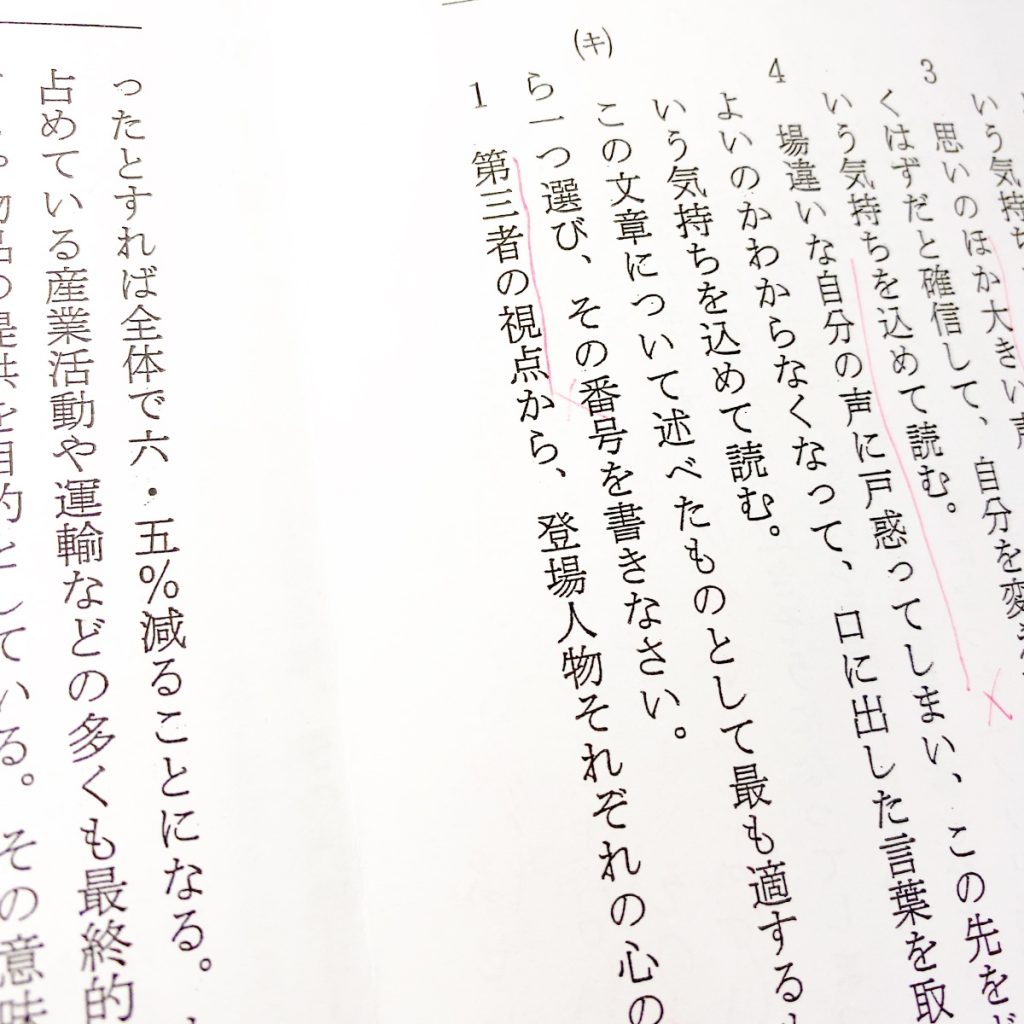 いう気持ち
3 思いのほか大きい声
くはずだと確信して、自分を変
いう気持ちを込めて読む。
4 場違いな自分の声に戸惑ってしまい、この先をど
よいのかわからなくなって、口に出した言葉を取
いう気持ちを込めて読む。
(キ) この文章について述べたものとして最も適する
ら一つ選び、その番号を書きなさい。
1 第三者の視点から、登場人物それぞれの心の
ったとすれば全体で六・五％減ることになる。
占めている産業活動や運輸などの多くも最終的
や物品の提供を目的としている。その意味